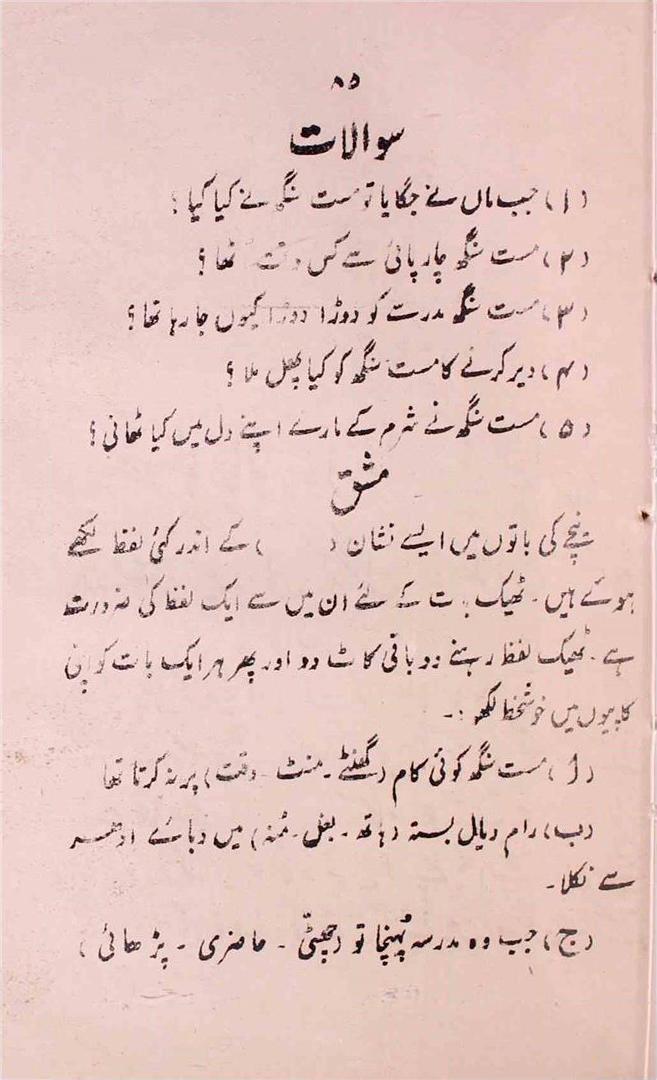 ۸۵
سوالات
(۱) جب ماں نے جگایا تو مست سنگھ نے کیا کیا؟
(۲) مست سنگھ چارپائی سے کس وقت تھا؟
(۳) مست سنگھ مدرسے کو دوڑا دوڑا کیوں جا رہا تھا؟
(۴) دیر کرنے کا مست سنگھ کو کیا پھل ملا؟
(۵) مست سنگھ نے شرم کے مارے اپنے دل میں کیا ٹھانی؟
مشق
نیچے کی باتوں میں ایسے نشان ( ) کے اندر کئی لفظ لکھے
ہوئے ہیں۔ ٹھیک بات کے لئے ان میں سے ایک لفظ کی ضرورت
ہے۔ ٹھیک لفظ رہنے دو باقی کاٹ دو اور پھر ہر ایک بات کو اپنی
کاپیوں میں خوشخط لکھو :۔
(ا) مست سنگھ کوئی کام (گھنٹے۔ منٹ۔ وقت) پر نہ کرتا تھا
(ب) رام دیال بستہ (ہاتھ۔ بغل۔ مُنہ) میں دبائے ادھر
سے نکلا۔
(ج) جب وہ مدرسہ پُہنچا تو (چھٹّی۔ حاضری۔ پڑھائی)